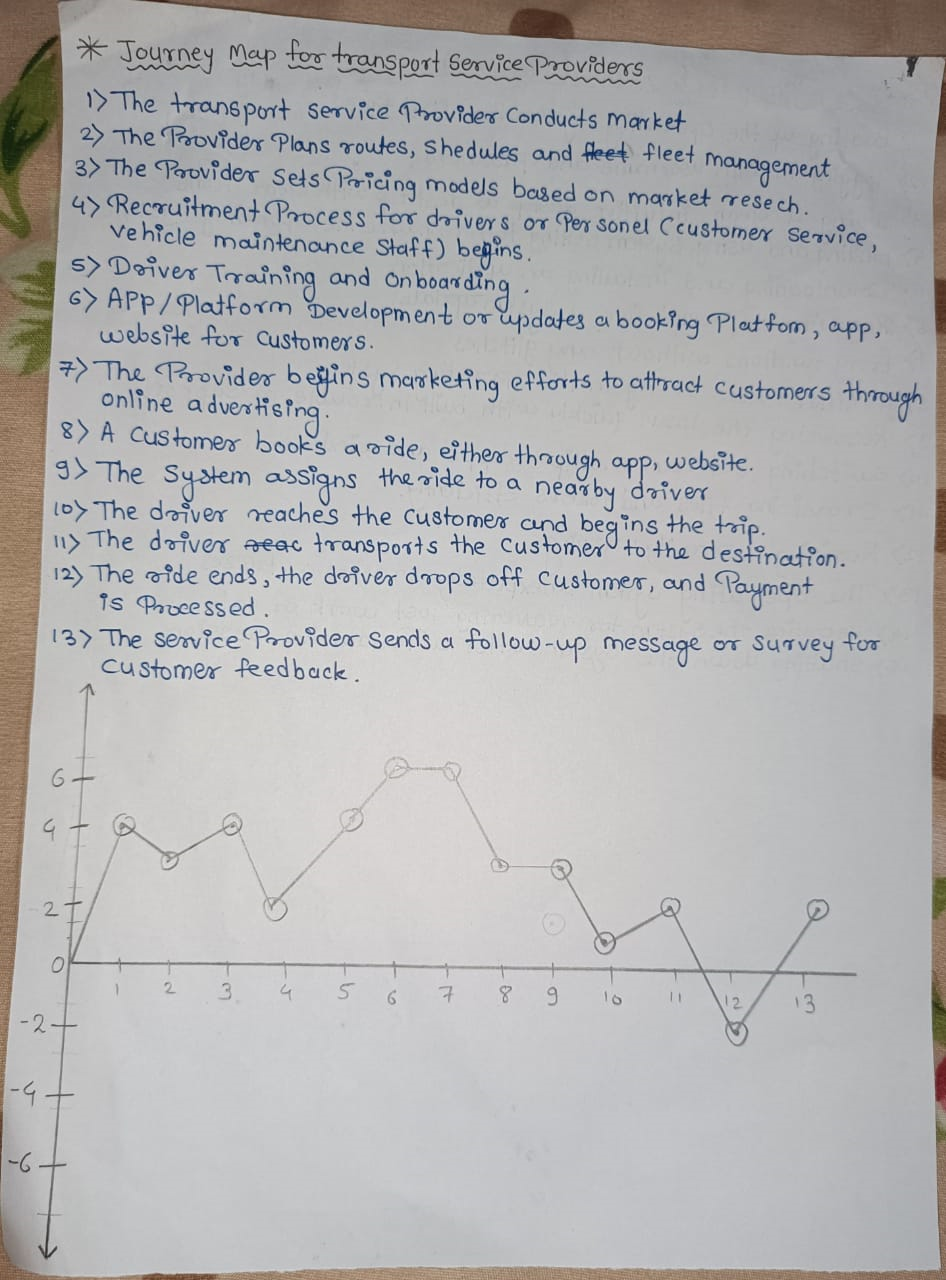 * Journey Map for transport Service Providers
1) The transport service Provider Conducts market
2) The Provider Plans routes, shedules and fleet fleet management
3) The Provider sets Pricing models based on market resech.
4) Recruitment Process for drivers or Personel (customer service,
vehicle maintenance staff) begins.
5) Driver Training and Onboarding.
6) APP/Platform Development or updates a booking Platfom, app,
website for customers.
7) The Provider begins marketing efforts to attract customers through
online advertising.
8) A customer books a ride, either through app, website.
9) The System assigns the ride to a nearby driver
10) The driver reaches the customer and begins the trip.
11) The driver reac transports the customer to the destination.
12) The ride ends, the driver drops off customer, and Payment
is Processed.
13) The service Provider sends a follow-up message or survey for
customer feedback.
6
4
2
0
1 2 3 4 5 6 7 8 9 10 11 12 13
-2
-4
-6